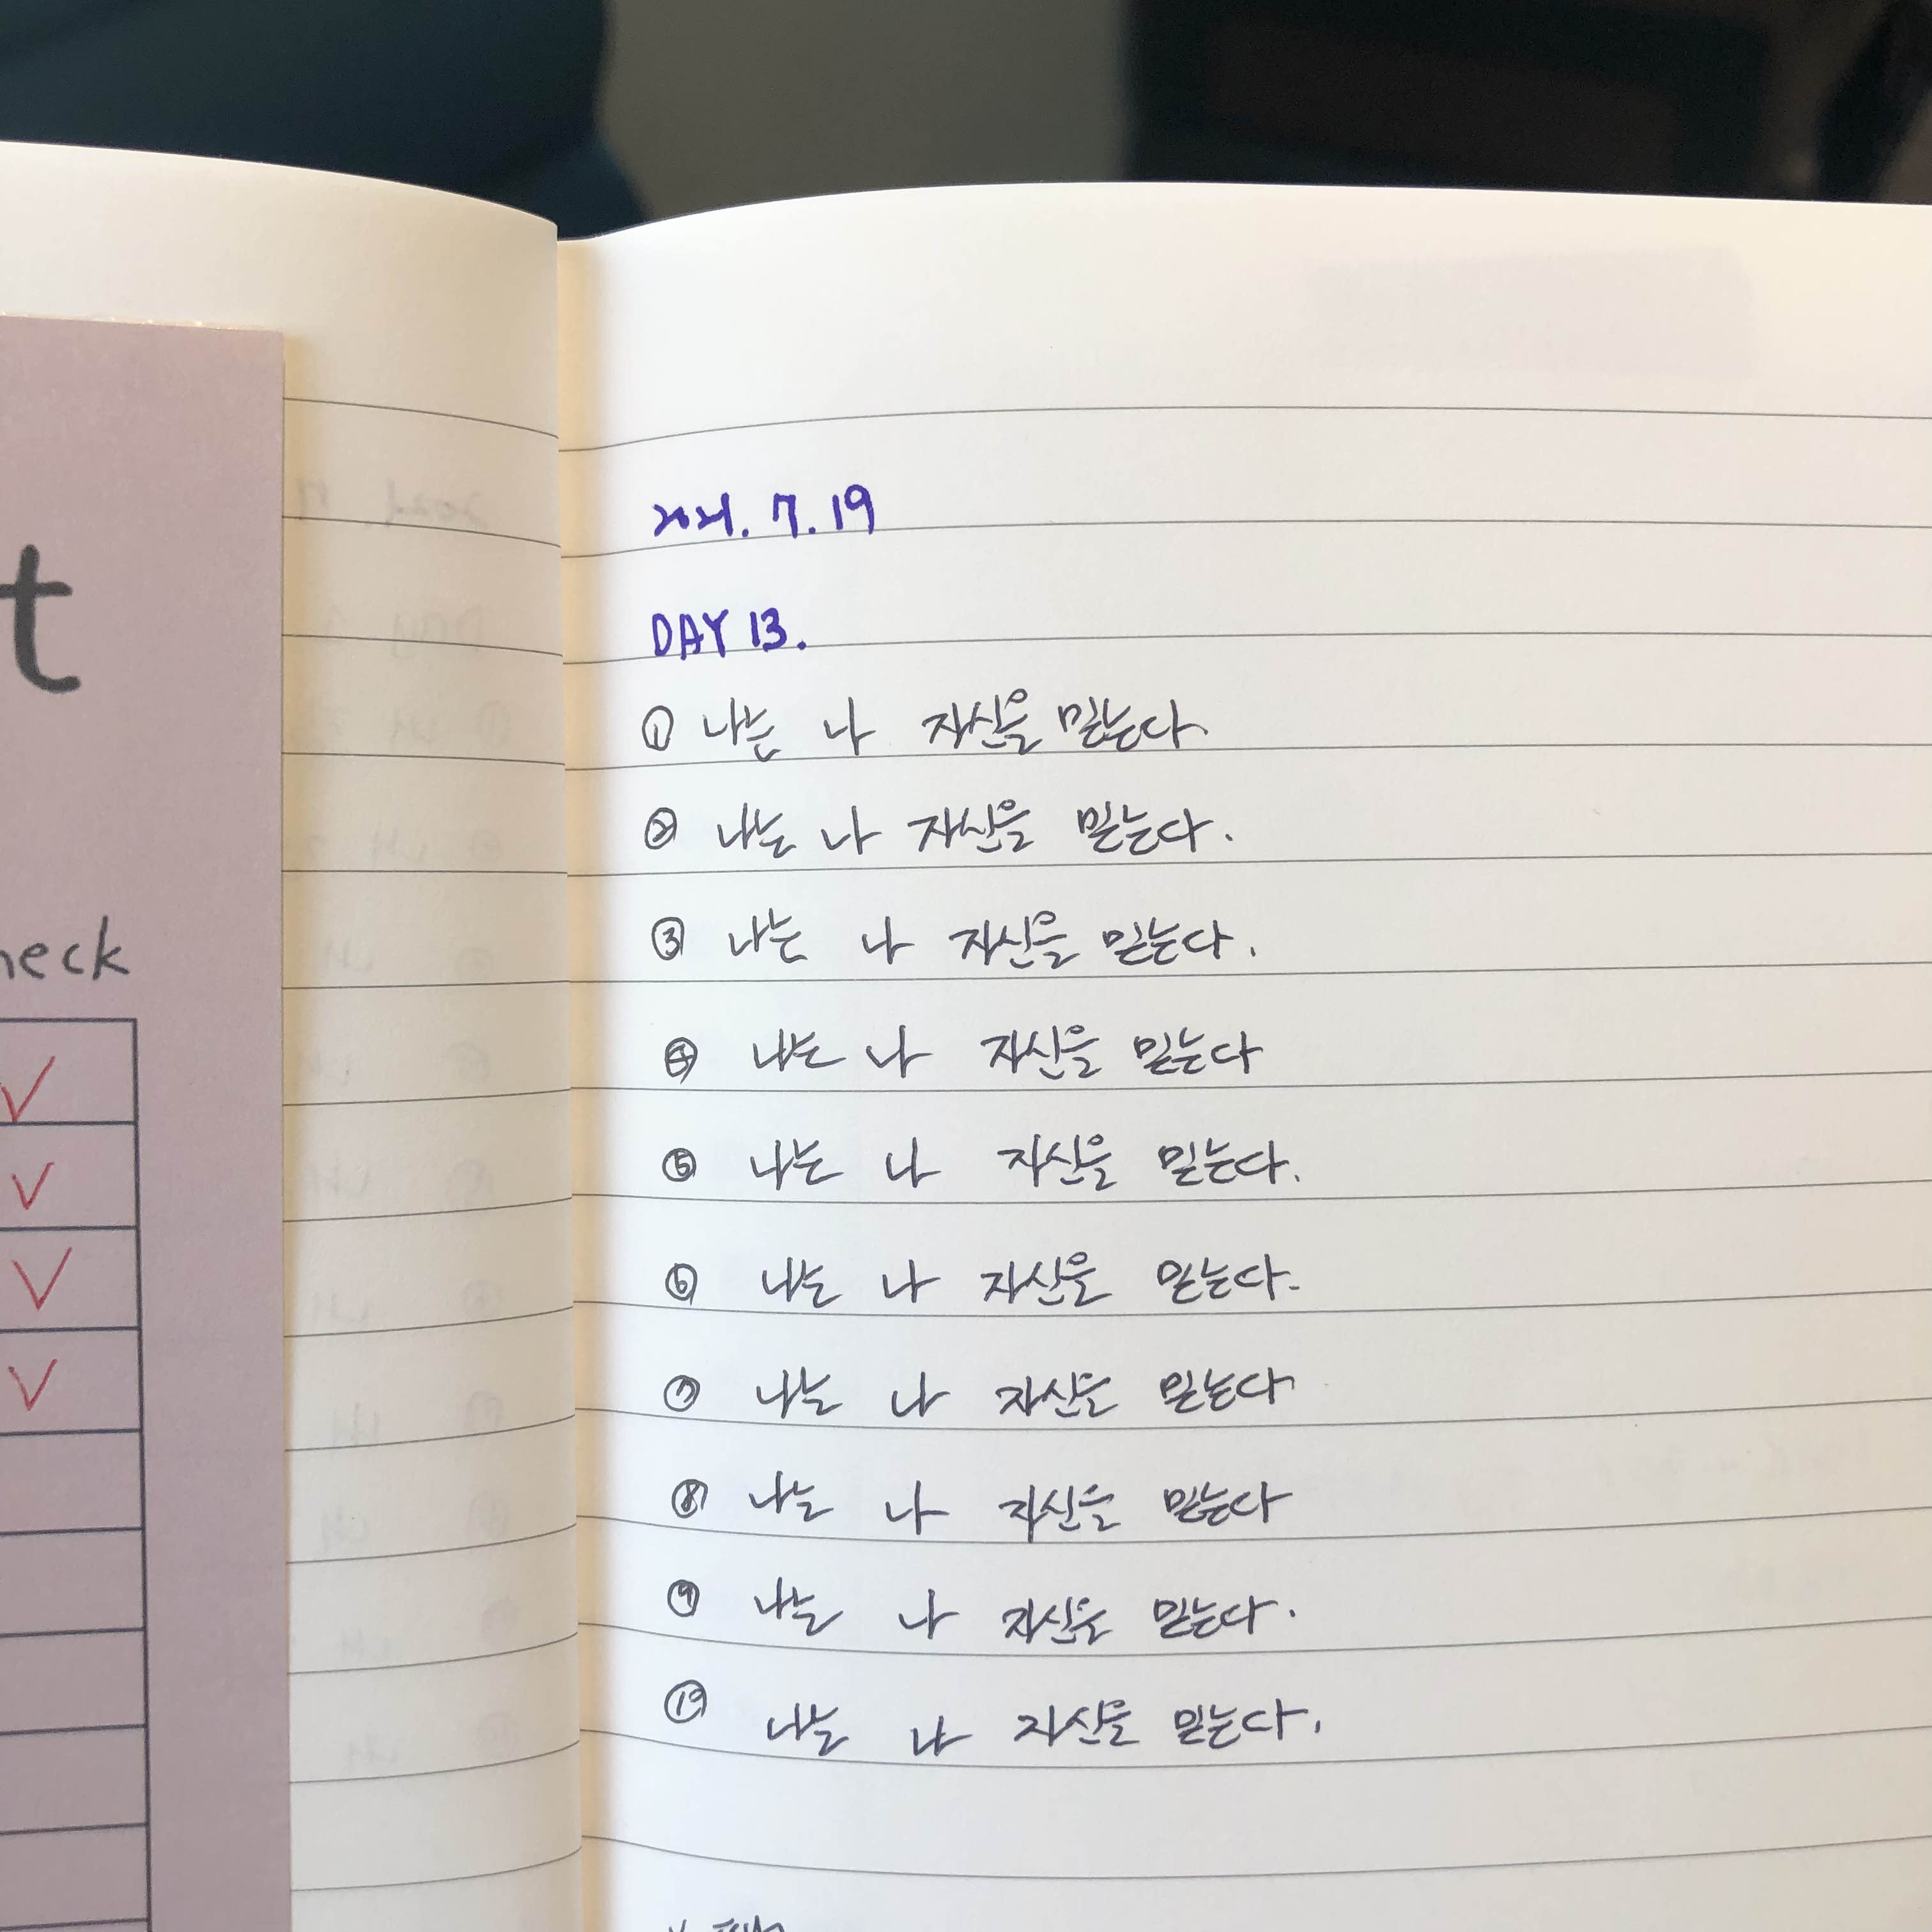 t
heck
2021. 7. 19
DAY 13.
① 나는 나 자신을 믿는다.
② 나는 나 자신을 믿는다.
③ 나는 나 자신을 믿는다.
④ 나는 나 자신을 믿는다
⑤ 나는 나 자신을 믿는다.
⑥ 나는 나 자신을 믿는다.
⑦ 나는 나 자신을 믿는다
⑧ 나는 나 자신을 믿는다
⑨ 나는 나 자신을 믿는다.
⑩ 나는 나 자신을 믿는다.